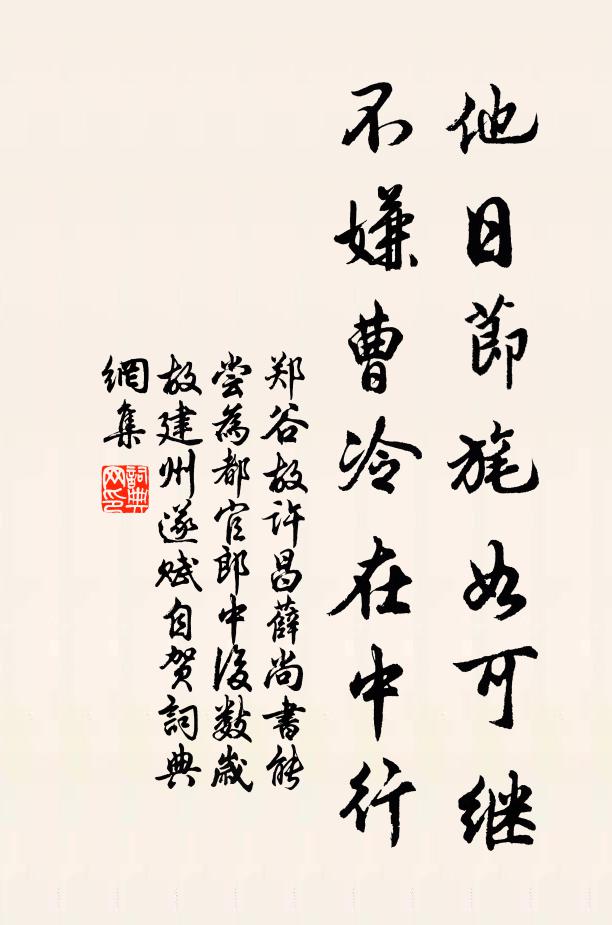 他日節旄如可继
不嫌曹冷在中行
郑谷故许昌薛尚書能
尝為都官郎中後数歲
故建州遂赋自贺詞典
網集
詞典网印